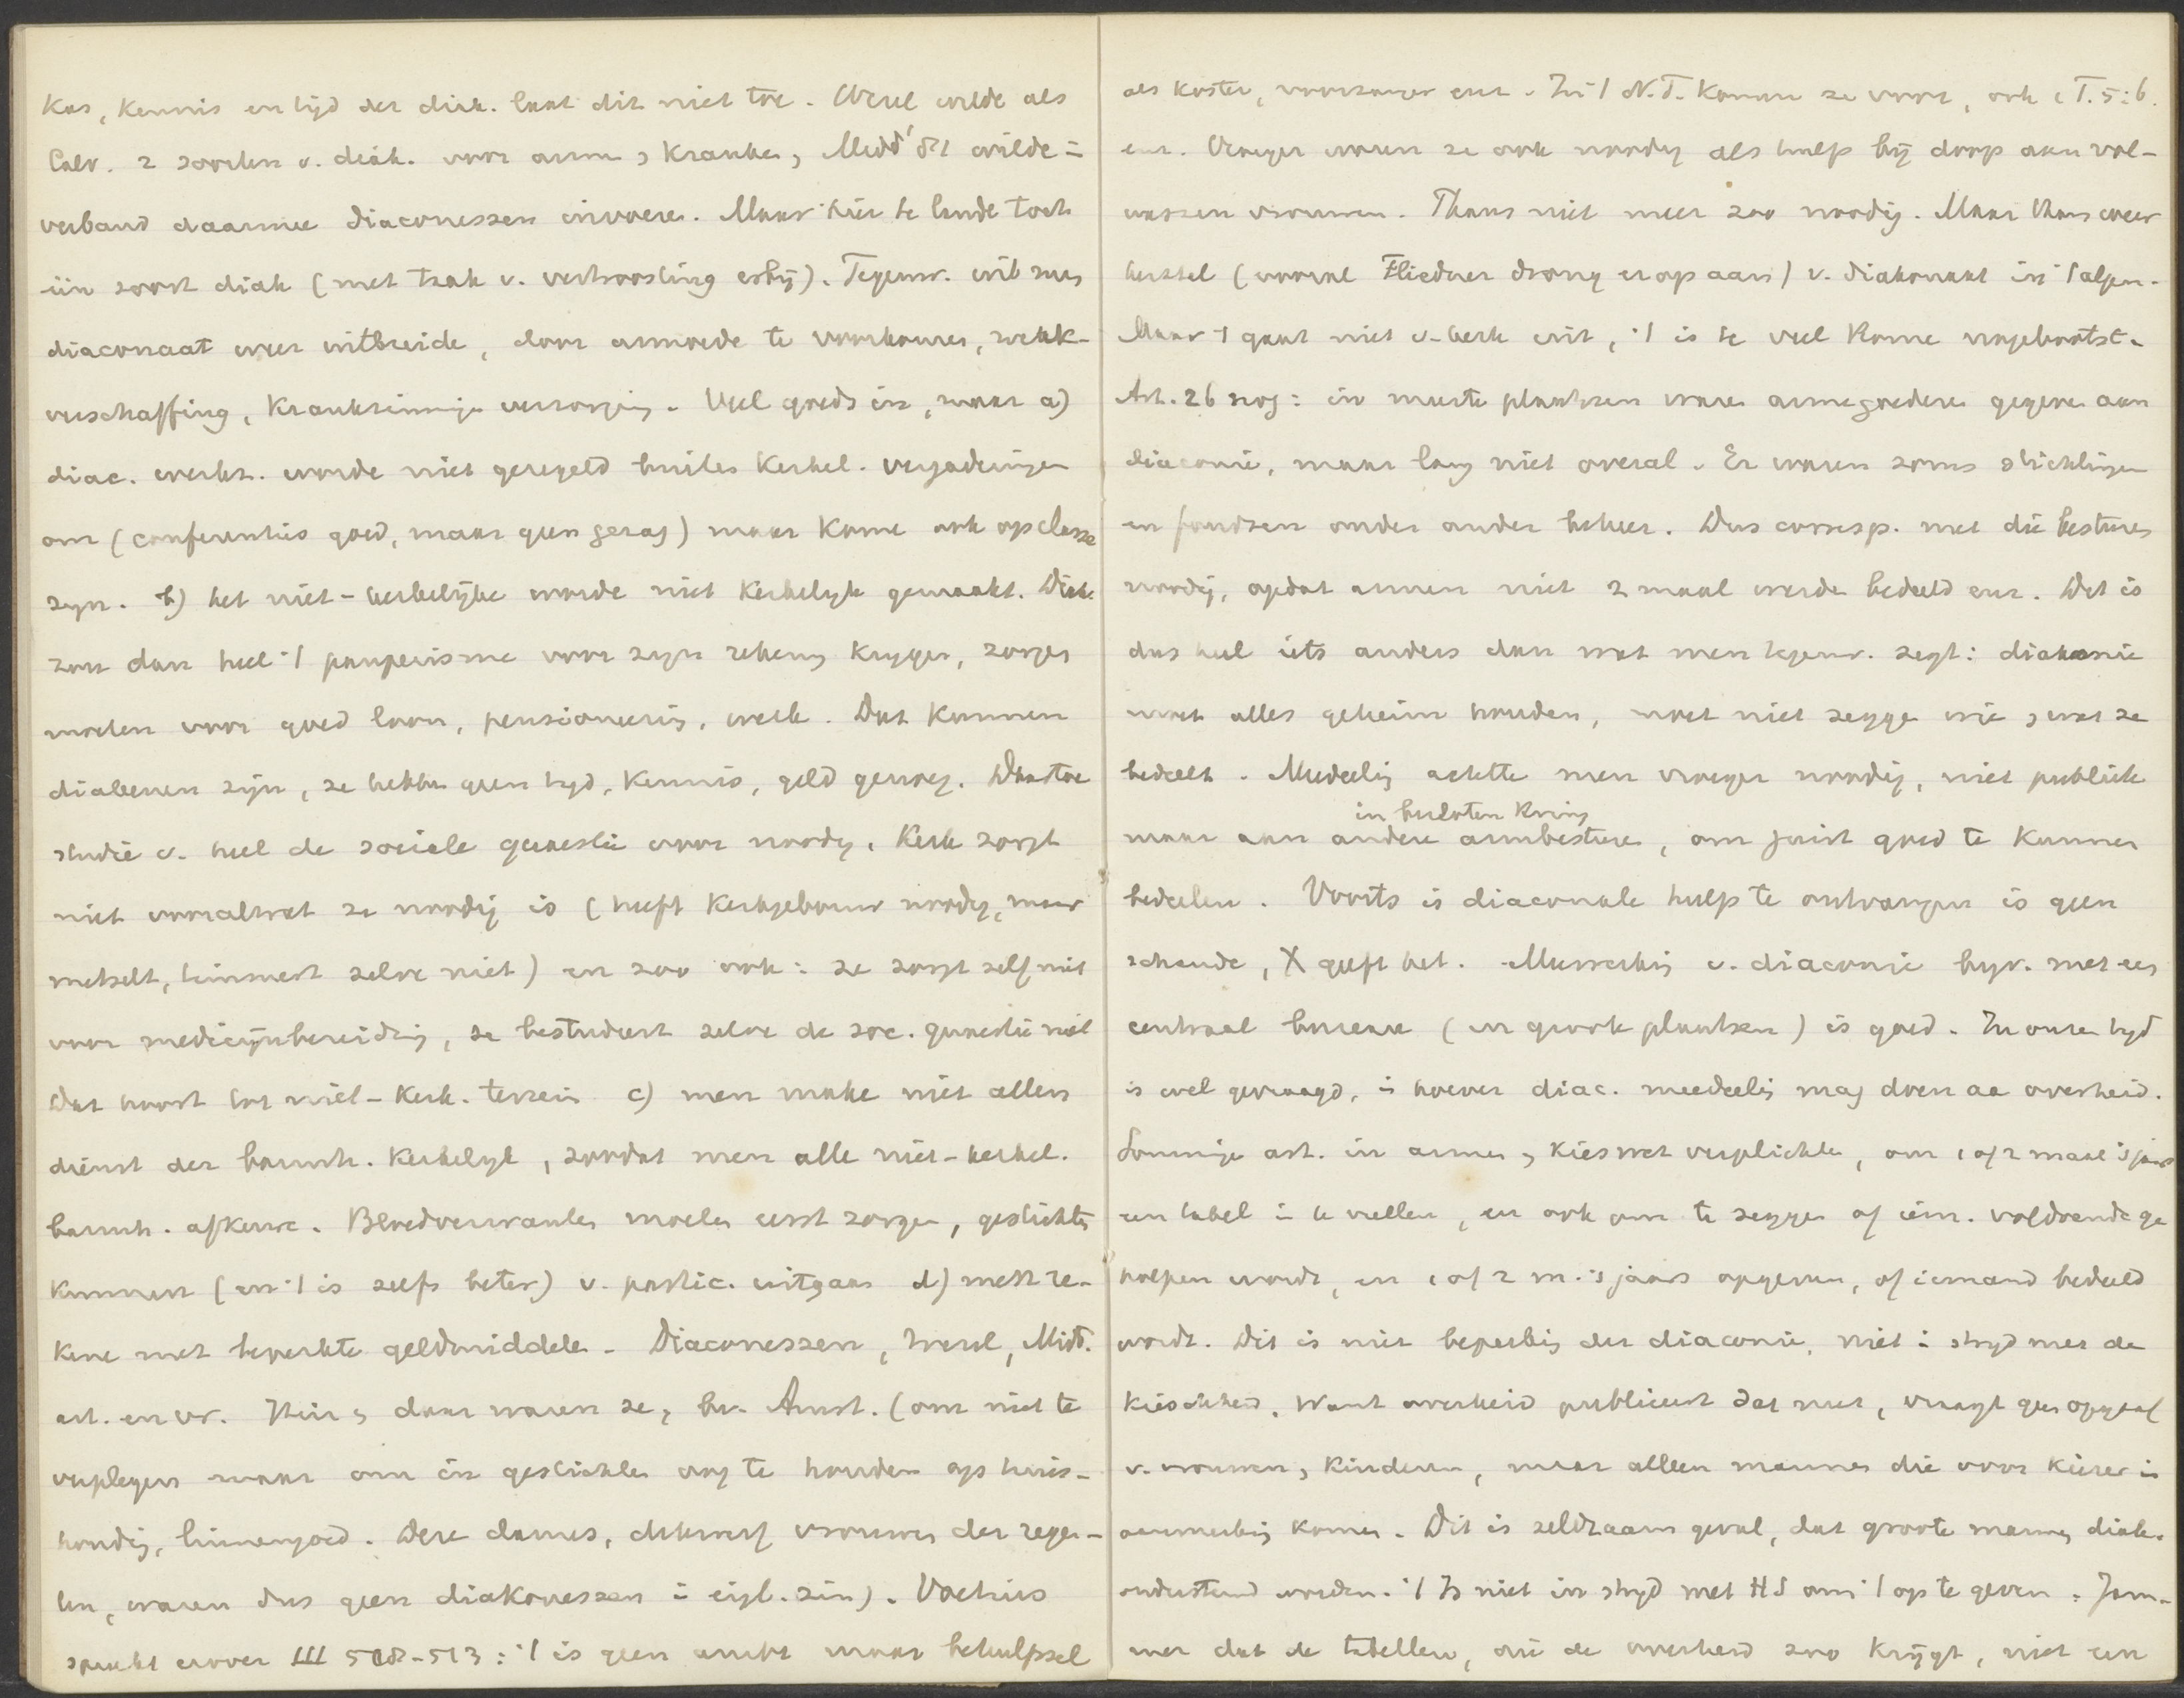 kas, kennis en tijd der diak. laat dit niet toe. Wezel wilde als
Calv. 2 soorten v. diak. voor armen, kranken, Midd' '81 wilde in
verband daarmee diaconessen invoeren. Maar hier te lande toch
één soort diak (met taak v. vertroosting erbij). Tegenw. wil men
diaconaat weer uitbreide, door armoede te voorkomen, werk-
verschaffing, krankzinnige verzorging. Veel goeds in, maar a)
diac. werkz. worde niet geregeld buiten kerkel. vergaderingen
om (conferenties goed, maar geen gezag) maar kome ook op classe
zijn. b) het niet-kerkelijke worde niet kerkelijk gemaakt. Diak.
zou dan heel 't pauperisme voor zijn rekening krijgen, zorgen
moeten voor goed loon, pensioneering, werk. Dat kunnen
diakenen zijn, ze hebben geen tijd, kennis, geld genoeg. Daartoe
studie v. heel de sociale quaestie voor noodig. Kerk zorgt
niet voor alwat ze noodig is (heeft kerkgebouw noodig, maar
metselt, timmert zelve niet) en zoo ook: ze zorgt zelf niet
voor medicijnbereiding, ze bestudeert zelve de soc. quaestie niet
Dat hoort tot niet-kerk. terrein c) men make niet allen
dienst der barmh. kerkelijk, zoodat men alle niet-kerkel.
barmh. afkeure. Bloedverwanten moeten eerst zorgen, gestichten
kunnen (en 't is zelfs beter) v. partic. uitgaan d) men re-
kene met beperkte geldmiddelen. Diaconessen, Wezel, Midd.
art. en vr. Hier en daar waren ze, bv. Amst. (om niet te
verplegen maar om in gestichten oog te houden op huis-
houding, linnengoed. Deze dames, deftige vrouwen der regen-
ten, waren dus geen diakonessen in eigl. zin). Voetius
spreekt erover III 508-513: 't is geen ambt maar behulpsel
als koster, voorzanger enz. In 't N.T. komen ze voor, ook 1 T. 5:6.
enz. Vroeger waren ze ook noodig als hulp bij doop aan vol-
wassen vrouwen. Thans niet meer zoo noodig. Maar thans weer
herstel (vooral Fliedner drong erop aan) v. diakonaat in 't algem.
Maar 't gaat niet v. kerk uit, 't is te veel Rome nagebootst.
Art. 26 nog: in meeste plaatsen waren armegoederen gegeven aan
diaconie, maar lang niet overal. Er waren soms stichtingen
en fondsen onder ander beheer. Dus corresp. met die besturen
noodig, opdat armen niet 2 maal werden bedeeld enz. Dat is
dus heel iets anders dan wat men tegenw. zegt: diakonie
moet alles geheim houden, moet niet zeggen wie en wat ze
bedeelt. Mededeeling achtte men vroeger noodig, niet publiek
in besloten kring
maar aan andere armbesturen, om juist goed te kunnen
bedeelen. Voorts is diaconale hulp te ontvangen is geen
schande, X geeft het. Meewerking v. diaconie bijv. met een
centraal bureau (in groote plaatsen) is goed. In onzen tijd
is wel gevraagd, in hoever diac. meedeeling mag doen aan overheid.
Sommige art. in armen en kieswet verplichten, om 1 of 2 maal 's jaars
een tabel in te vullen, en ook om te zeggen of iem. voldoende ge
holpen wordt, en 1 of 2 m. 's jaars opgeven, of iemand bedeeld
wordt. Dit is niet beperking der diaconie, niet in strijd met de
kieschheid. Want overheid publiceert dat niet, vraagt geen opgaaf
v. vrouwen en kinderen, maar alleen mannen die voor kiezer in
aanmerking komen. Dit is zeldzaam geval, dat groote mannen diak.
ondersteund worden. 't Is niet in strijd met HS om 't op te geven. Jam-
mer dat de tabellen, die de overheid zoo krijgt, niet een